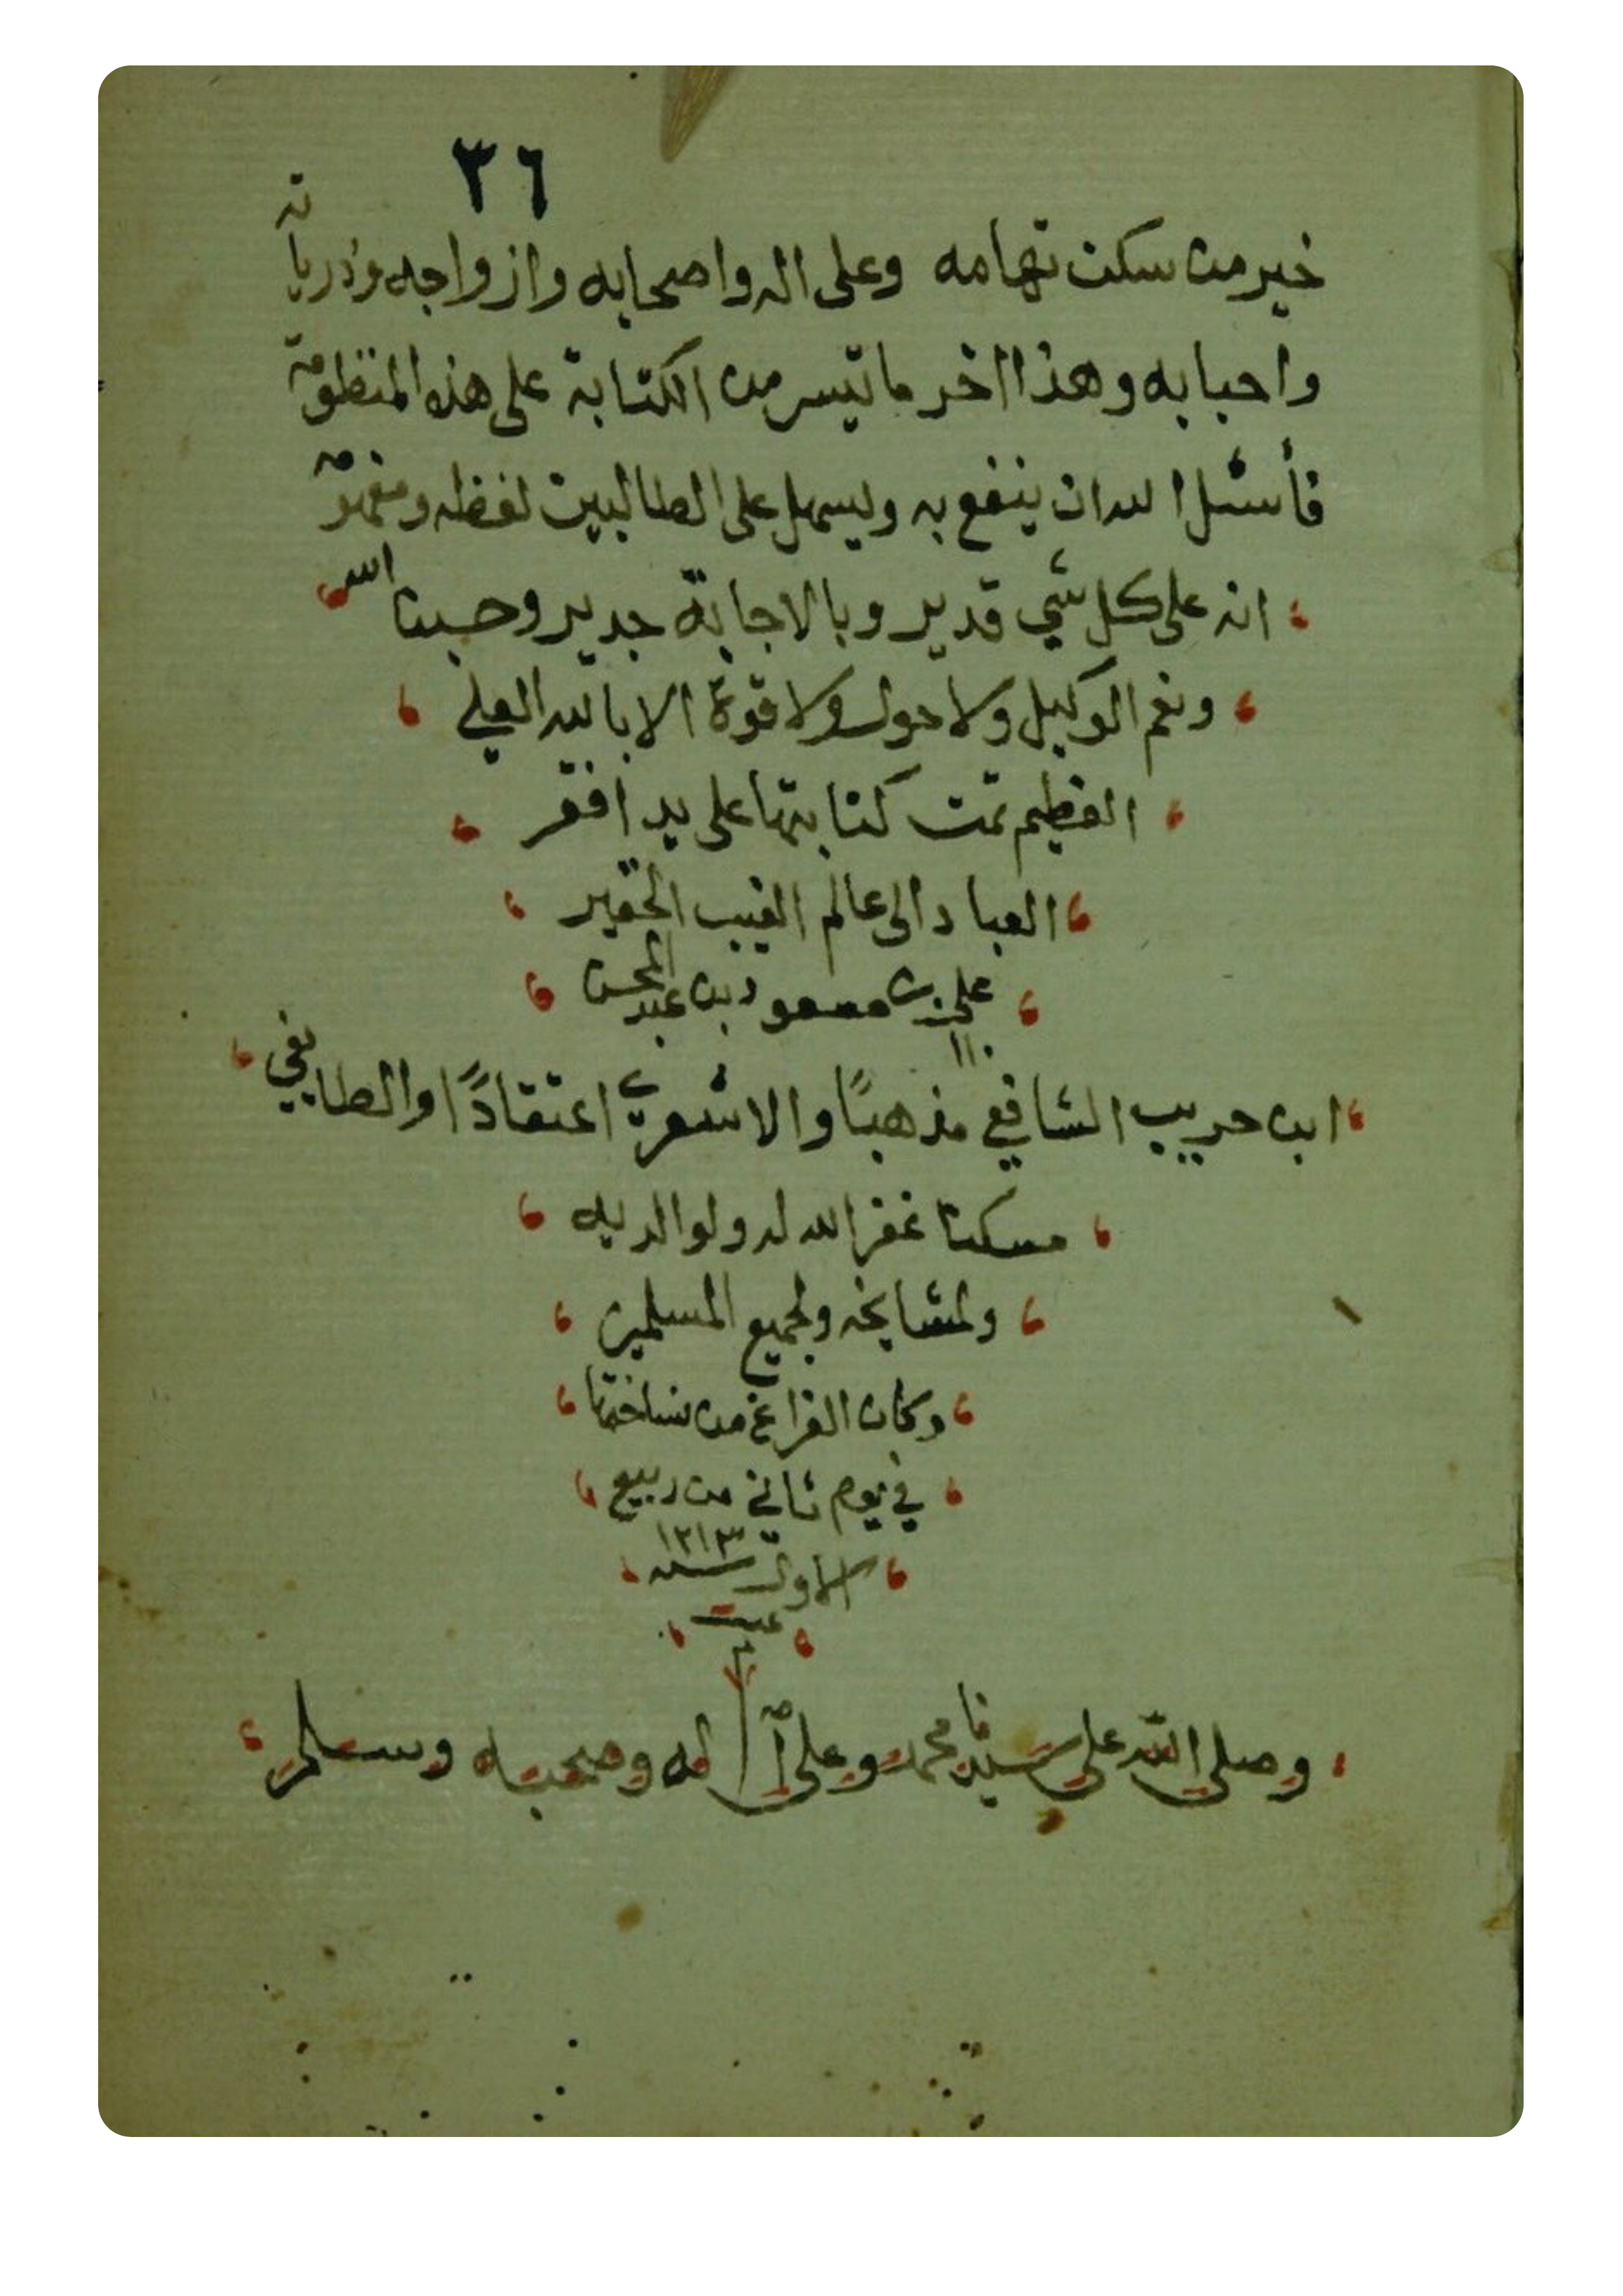 ٣٦
خير من سكن تهامه وعلى اله واصحابه وازواجه وذرياته
واحبابه وهذا اخر ما تيسر من الكتابة على هذه المنظومة
فأسئل الله ان ينفع به ويسهل على الطالبين لفظه ومفهومه
انه على كل شي قدير وبالاجابة جدير وحسبنا الله
ونعم الوكيل ولا حول ولا قوة الا بالله العلي
العظيم تمت كتابتها على يد افقر
العباد الى عالم الغيب الحقير
علي بن مسعود بن عبد المحسن
ابن حريب الشافعي مذهبًا والاشعريّ اعتقادًا والطايفي
مسكنا غفر الله له ولوالديه
ولمشايخه ولجميع المسلمين
وكان الفراغ من نساختها
في يوم ثاني من ربيع
الاول سنه ١٢١٣
تمت
م
وصلى الله على سيدنا محمد وعلى آله وصحبه وسلم